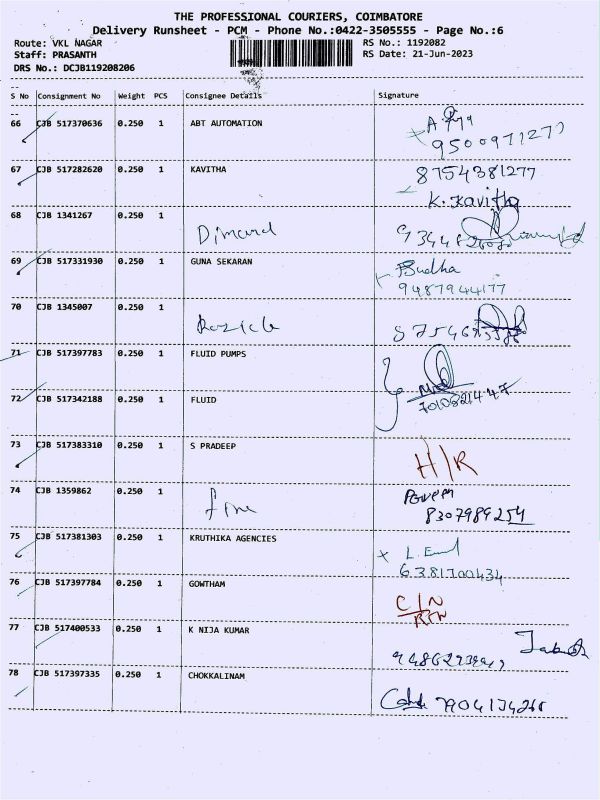 THE PROFESSIONAL COURIERS, COIMBATORE
Delivery Runsheet - PCM - Phone No.:0422-3505555 - Page No.:6
Route: VKL NAGAR RS No.: 1192082
Staff: PRASANTH RS Date: 21-Jun-2023
DRS No.: DCJB119208206
S No Consignment No Weight PCS Consignee Details Signature
66 CJB 517370636 0.250 1 ABT AUTOMATION
67 CJB 517282620 0.250 1 KAVITHA 8754381277
K. Kavitha
68 CJB 1341267 0.250 1
69 CJB 517331930 0.250 1 GUNA SEKARAN Sudha
9487944177
70 CJB 1345007 0.250 1
71 CJB 517397783 0.250 1 FLUID PUMPS
72 CJB 517342188 0.250 1 FLUID
73 CJB 517383310 0.250 1 S PRADEEP H/R
74 CJB 1359862 0.250 1
8307989254
75 CJB 517381303 0.250 1 KRUTHIKA AGENCIES
6381700434
76 CJB 517397784 0.250 1 GOWTHAM C/N
77 CJB 517400533 0.250 1 K NIJA KUMAR
78 CJB 517397335 0.250 1 CHOKKALINAM